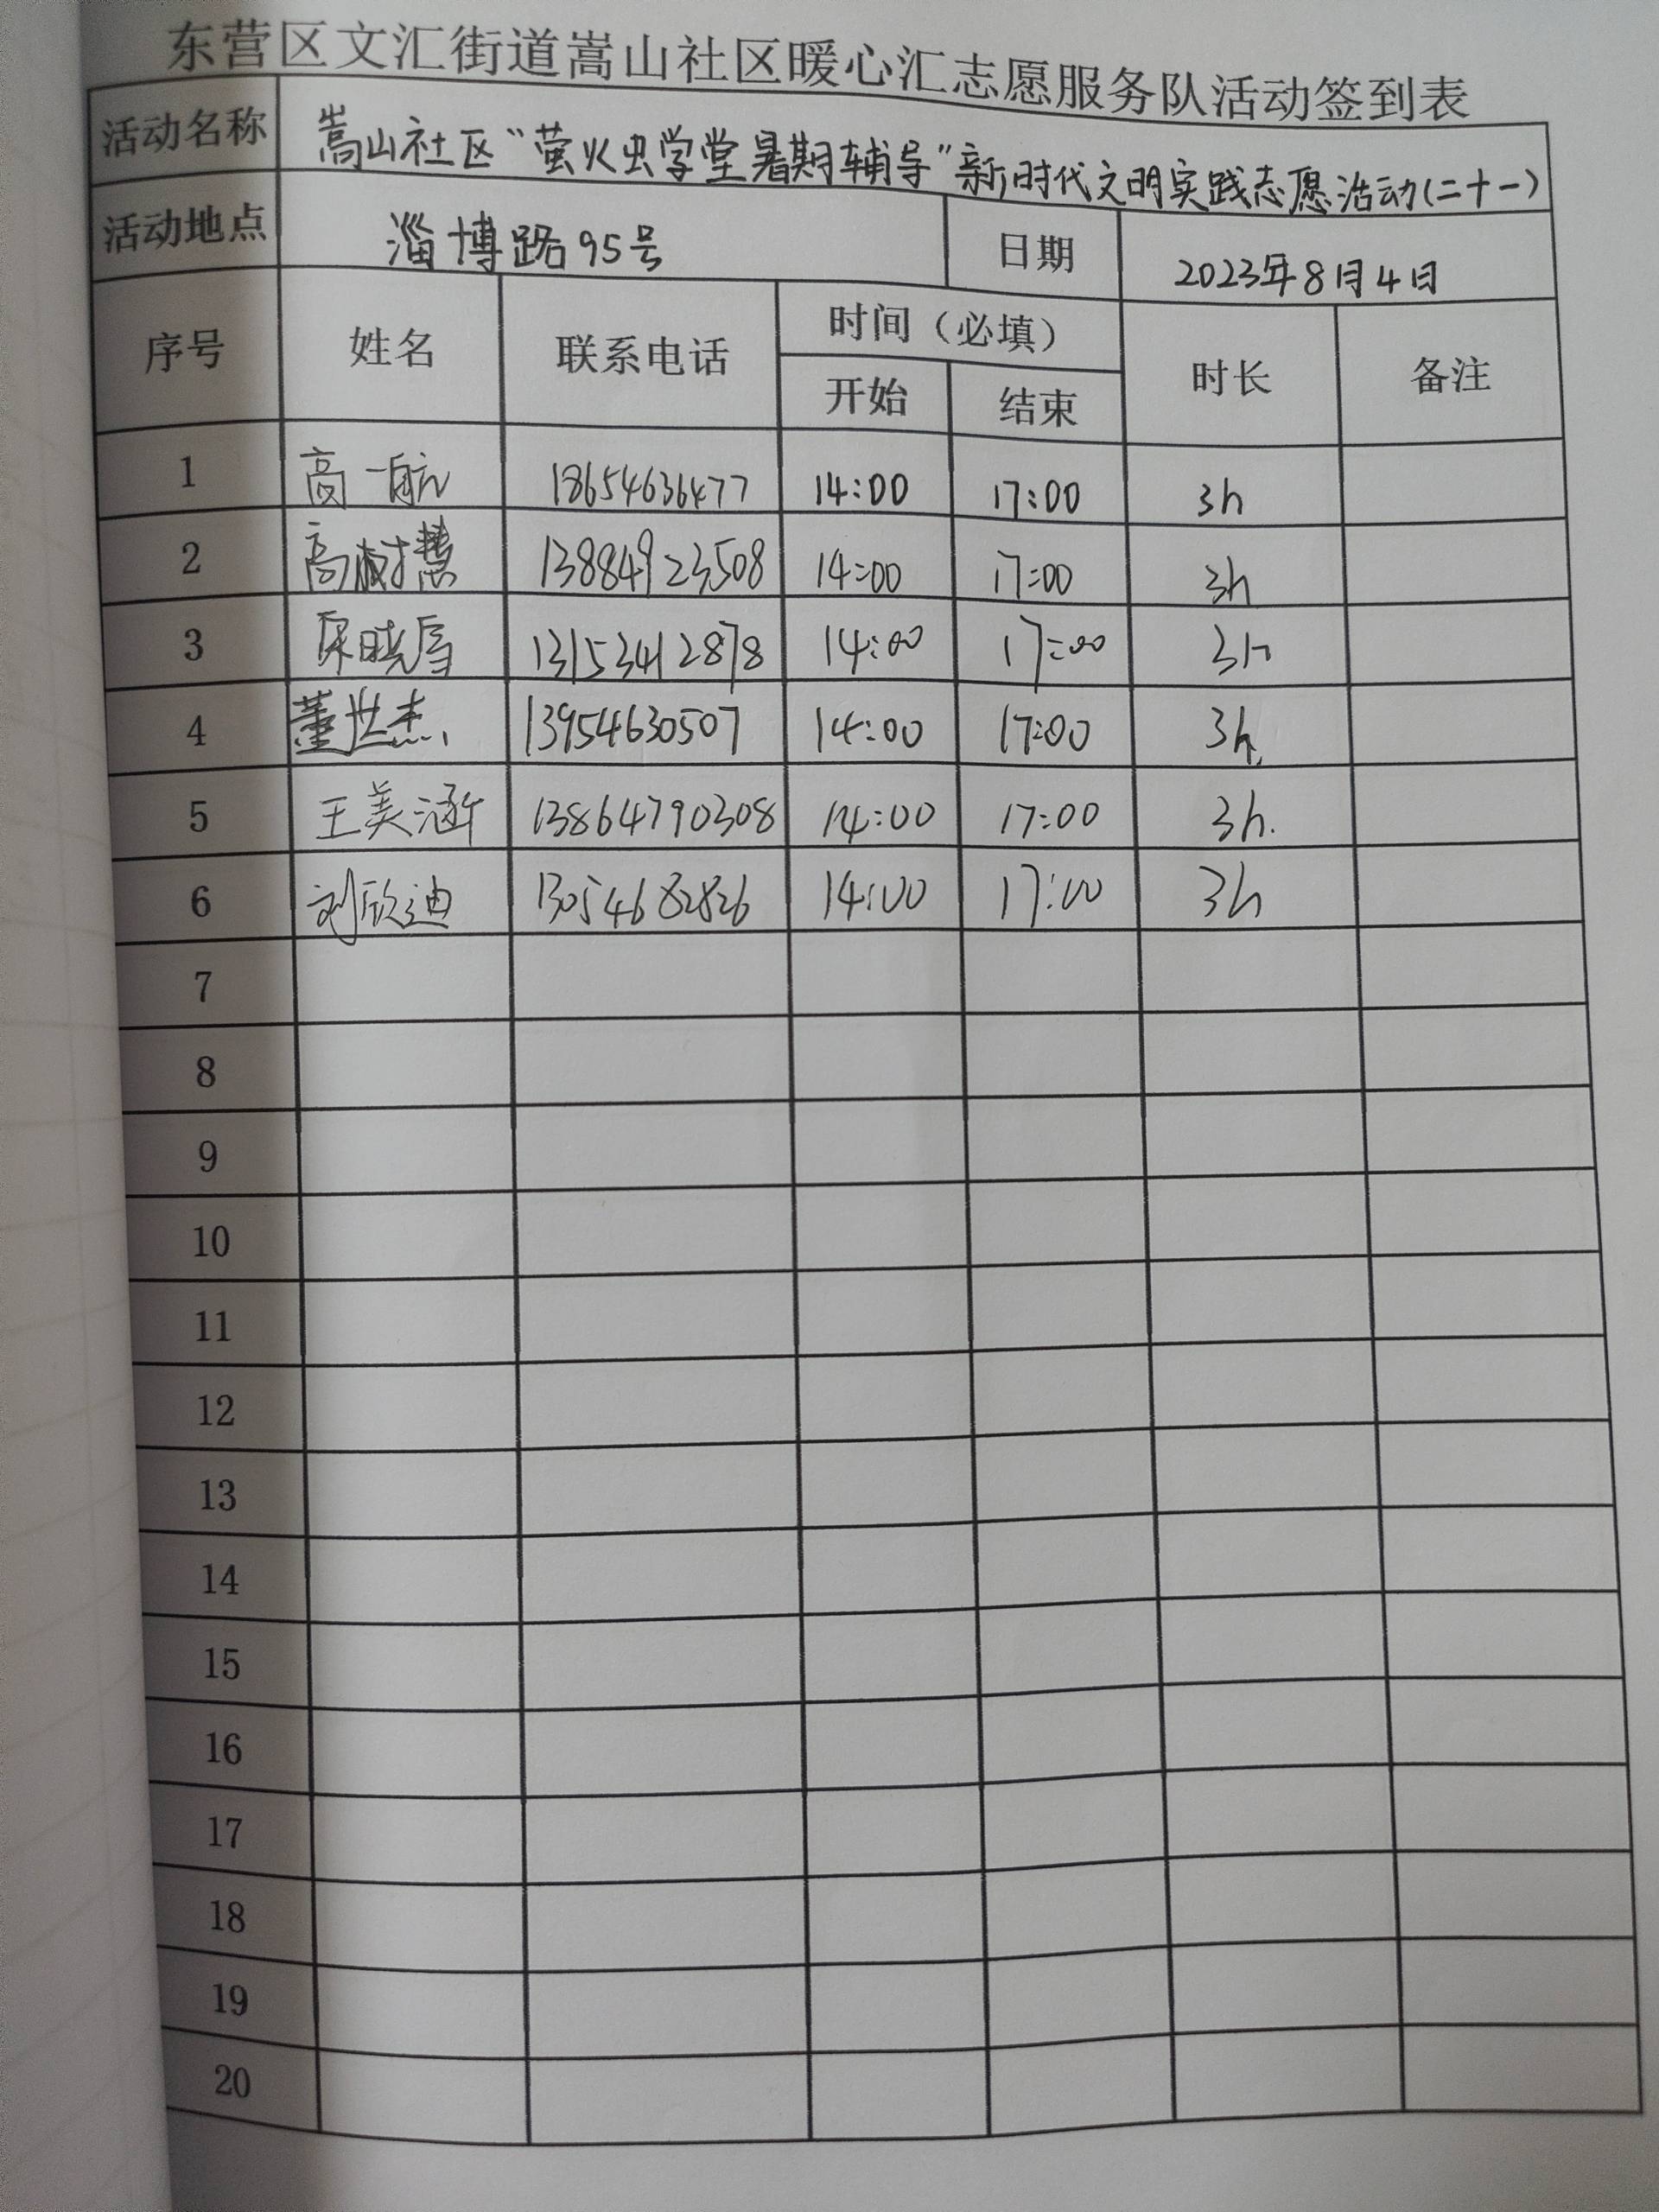 东营区文汇街道嵩山社区暖心汇志愿服务队活动签到表
活动名称 嵩山社区“萤火虫学堂暑期辅导”新时代文明实践志愿活动(二十一)
活动地点 淄博路95号 日期 2023年8月4日
序号 姓名 联系电话 时间（必填） 时长 备注
开始 结束
1 高一航 18654636477 14:00 17:00 3h
2 高树慧 13884923508 14:00 17:00 3h
3 13153412878 14:00 17:00 3h
4 董世杰 13954630507 14:00 17:00 3h.
5 王美涵 13864790308 14:00 17:00 3h.
6 刘欣迪 13054682826 14:00 17:00 3h
7
8
9
10
11
12
13
14
15
16
17
18
19
20